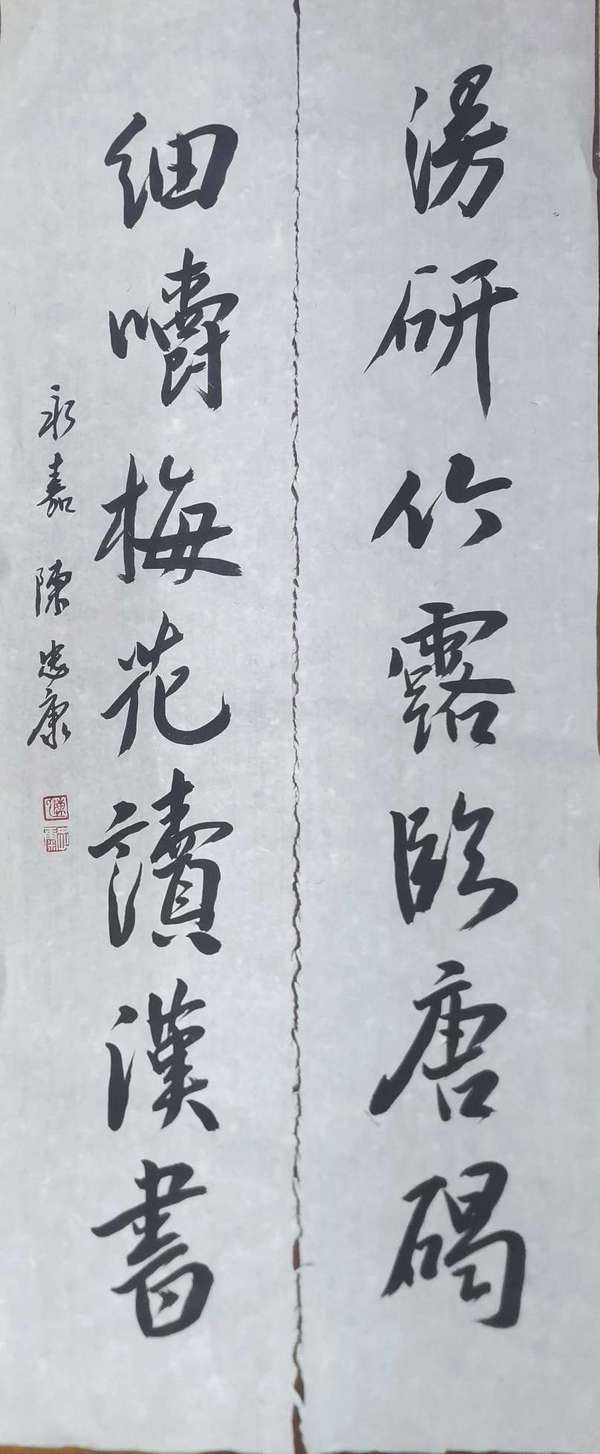 漫研竹露臨唐碣
細嚼梅花讀漢書
永嘉 陳忠康